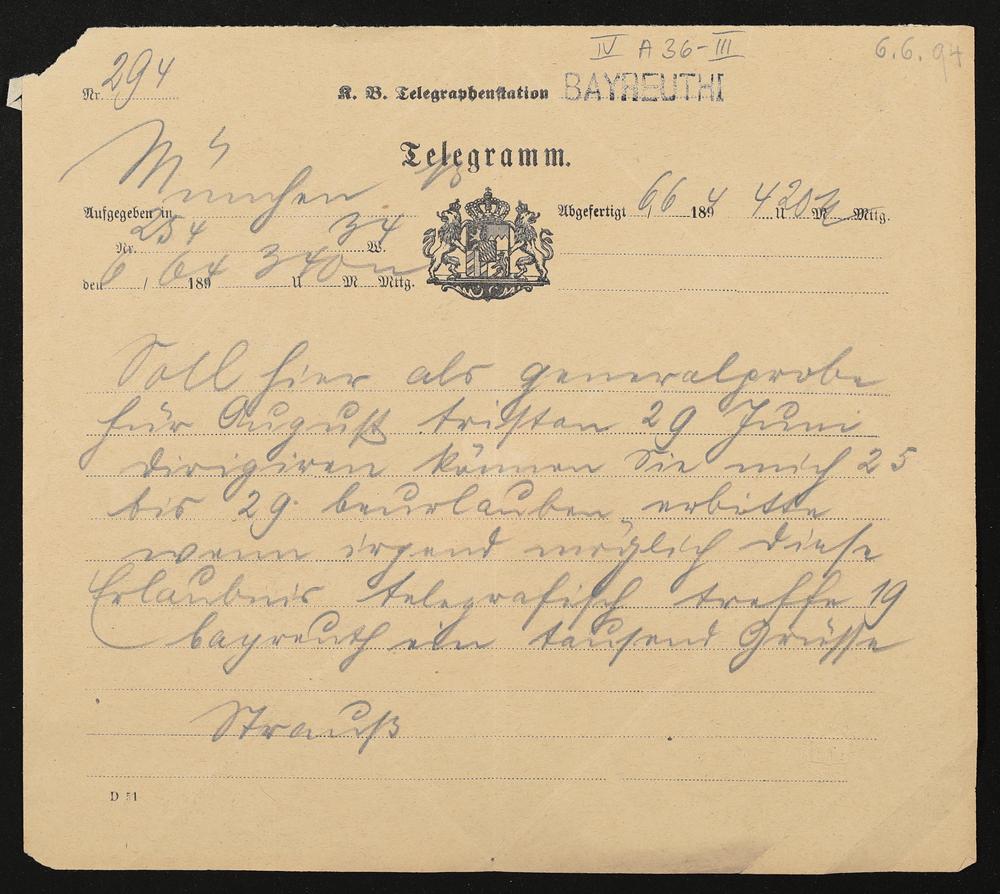 IV A 36-III
6.6.94
Nr. 294
K. B. Telegraphenstation BAYREUTH I
Telegramm.
München
Aufgegeben in
Abgefertigt 6/6 1894 4 U 20 M Mttg.
Nr. 254 34 W.
den 6/6 1894 3 U 40 M n Mttg.
Soll hier als generalprobe
für August tristan 29 Juni
dirigiren können Sie mich 25
bis 29. beurlauben erbitte
wenn irgend möglich diese
Erlaubnis telegrafisch treffe 19
bayreuth ein tausend Grüsse
Strauß
D 51